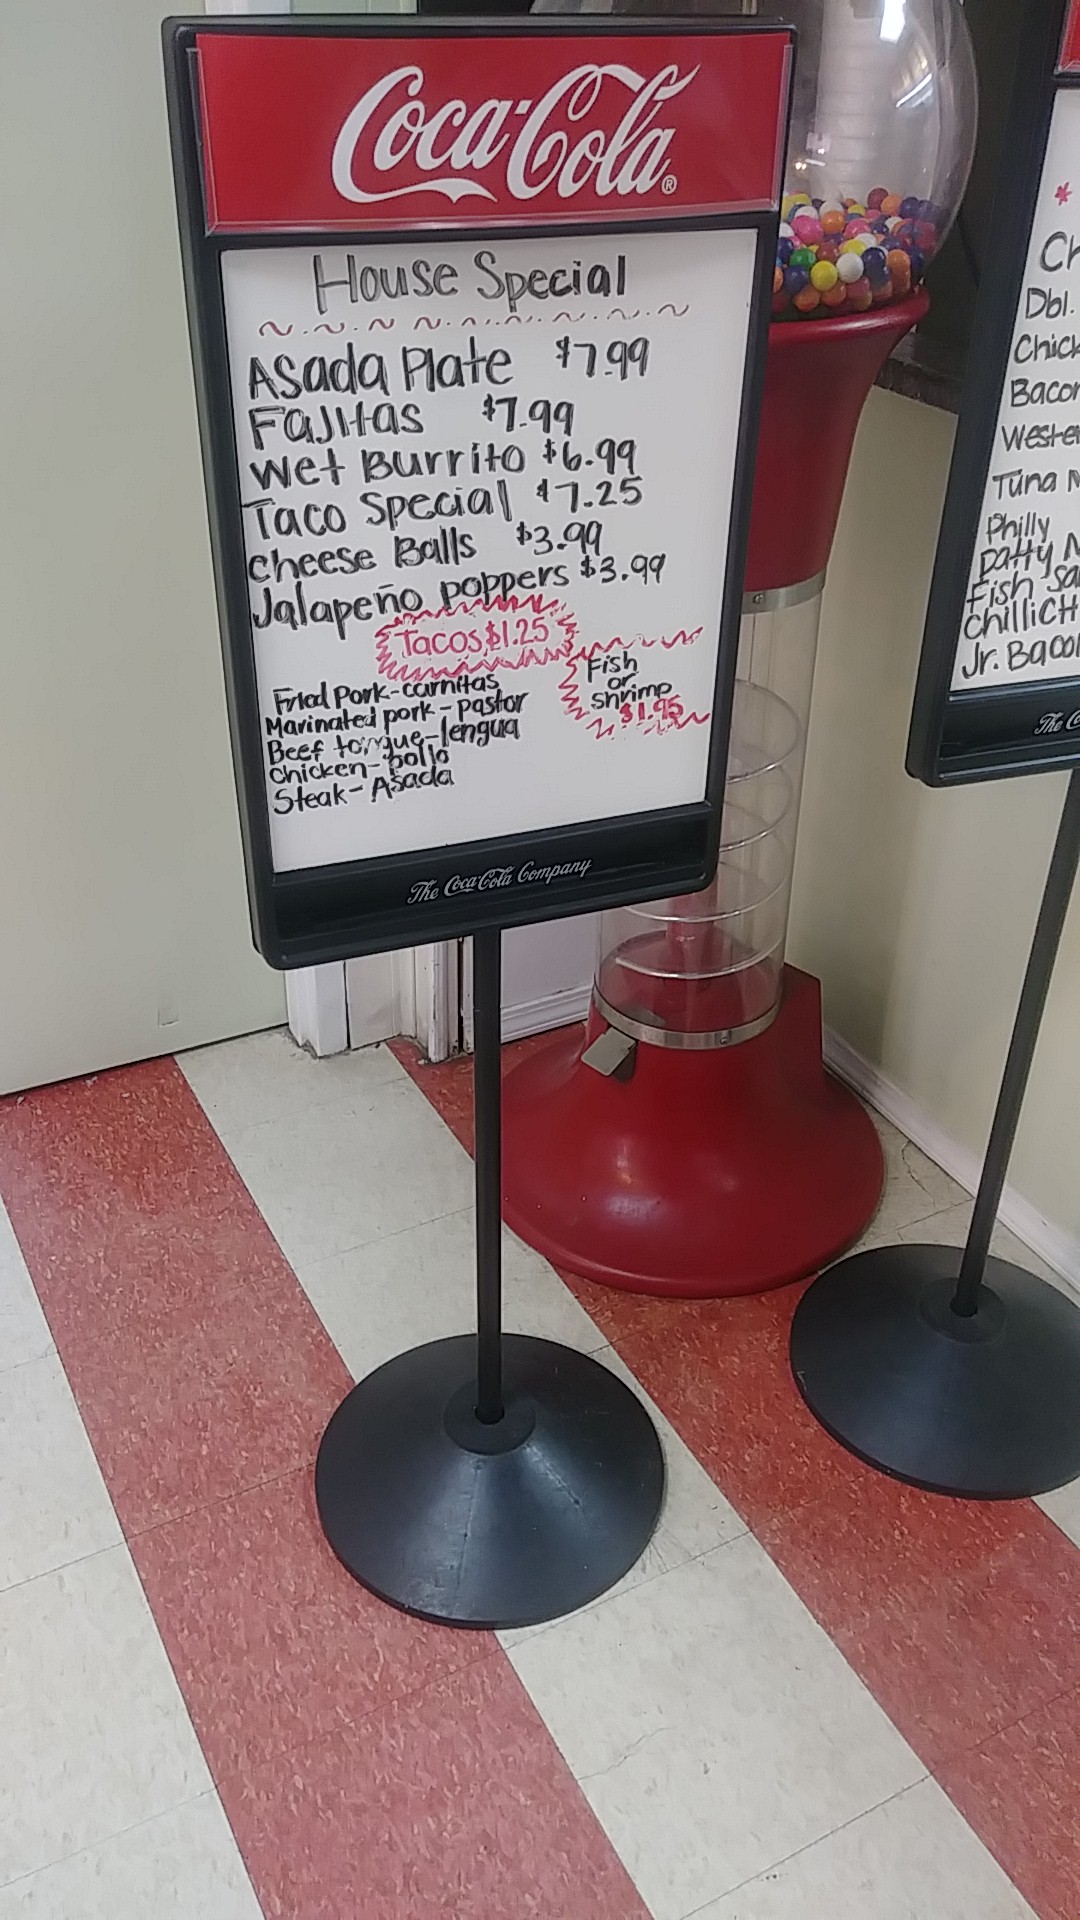 Coca-Cola®
House Special
Asada Plate $7.99
Fajitas $7.99
Wet Burrito $6.99
Taco Special $7.25
Cheese Balls $3.99
Jalapeño poppers $3.99
Tacos $1.25
Fried Pork-carnitas
Marinated pork-pastor
Beef tongue-lengua
Chicken-pollo
Steak-Asada
Fish
or
shrimp
$1.95
The Coca-Cola Company
*
Dbl.
Tuna
Philly
Patty
Fish
Jr. Bacon
The